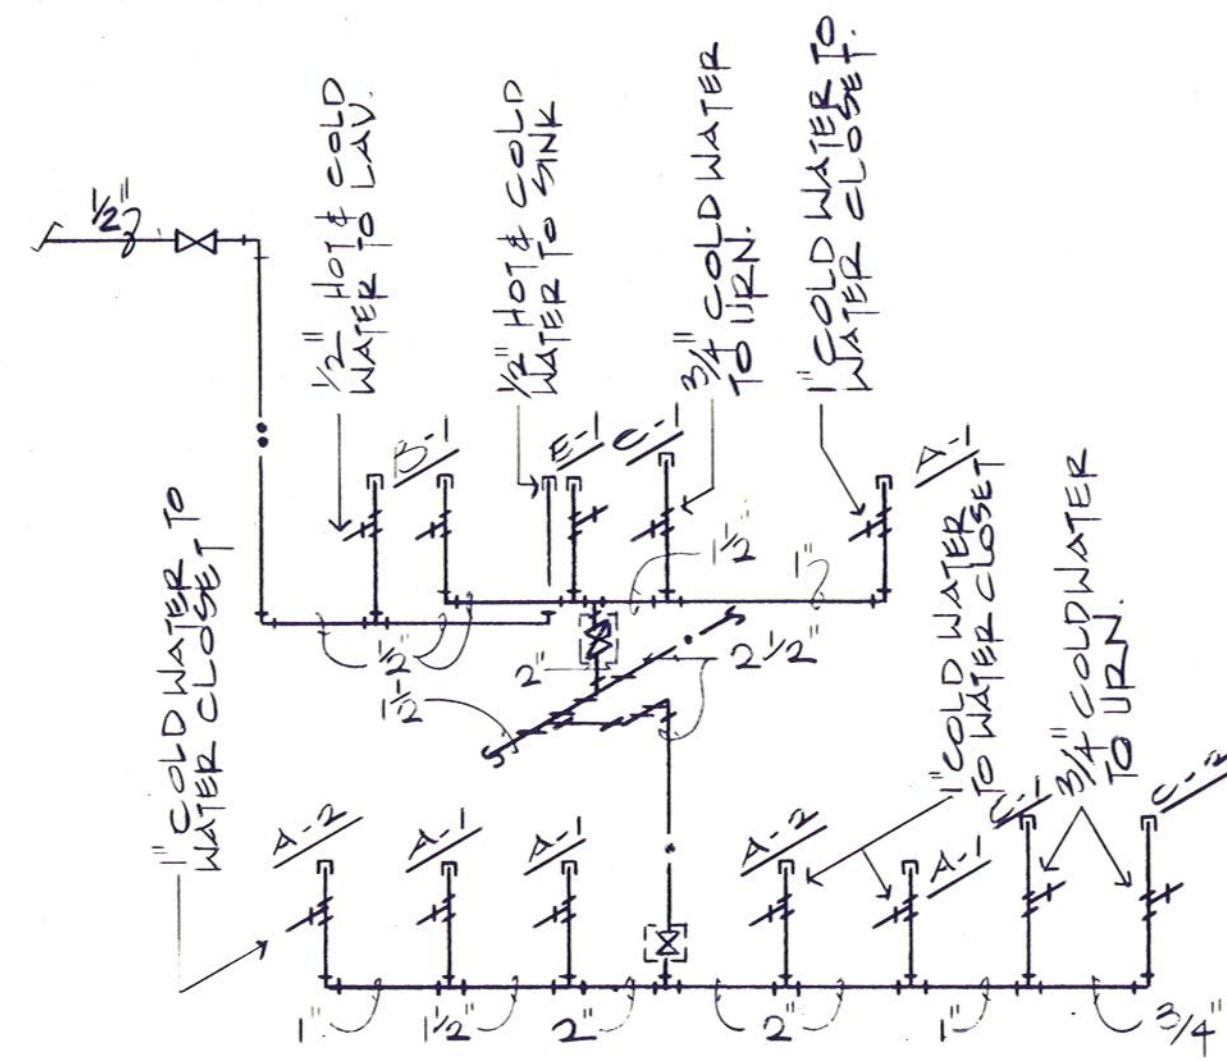 1/2"
1/2" HOT & COLD
WATER TO LAV.
1/2" HOT & COLD
WATER TO SINK
3/4" COLD WATER
TO URN.
1" COLD WATER TO
WATER CLOSET.
B-1
E-1
C-1
A-1
1" COLD WATER TO
WATER CLOSET
1 1/2"
1"
1/2"
2"
2 1/2"
1 1/2
1" COLD WATER
TO WATER CLOSET
3/4" COLD WATER
TO URN.
A-2
A-1
A-1
A-2
A-1
C-1
C-2
1"
1 1/2"
2"
2"
1"
3/4"